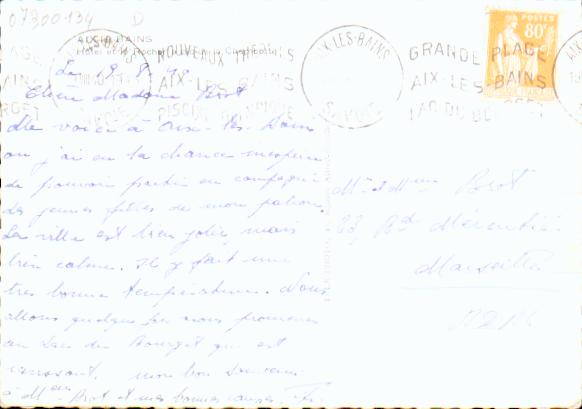 07300-134 D
AIX-LES-BAINS
NOUVEAUX THERMES
AIX-LES-BAINS
PISCINE
AIX-LES-BAINS
SAVOIE
GRANDE PLAGE
AIX-LES-BAINS
LAC DU BOURGET
POSTES
80c
Le 19.8.
Chère Madame Brot
Me voici à Aix-les-Bains
où j'ai eu la chance inespérée
de pouvoir partir en compagnie
des jeunes filles de mon patron.
La ville est bien jolie, mais
très calme. Il y fait une
très bonne température. Nous
allons quelque fois nous promener
au Lac du Bourget qui est
ravissant. Mon bon souvenir
à Mr Brot et mes bonnes
Mr et Mme Brot
Bd
Marseille